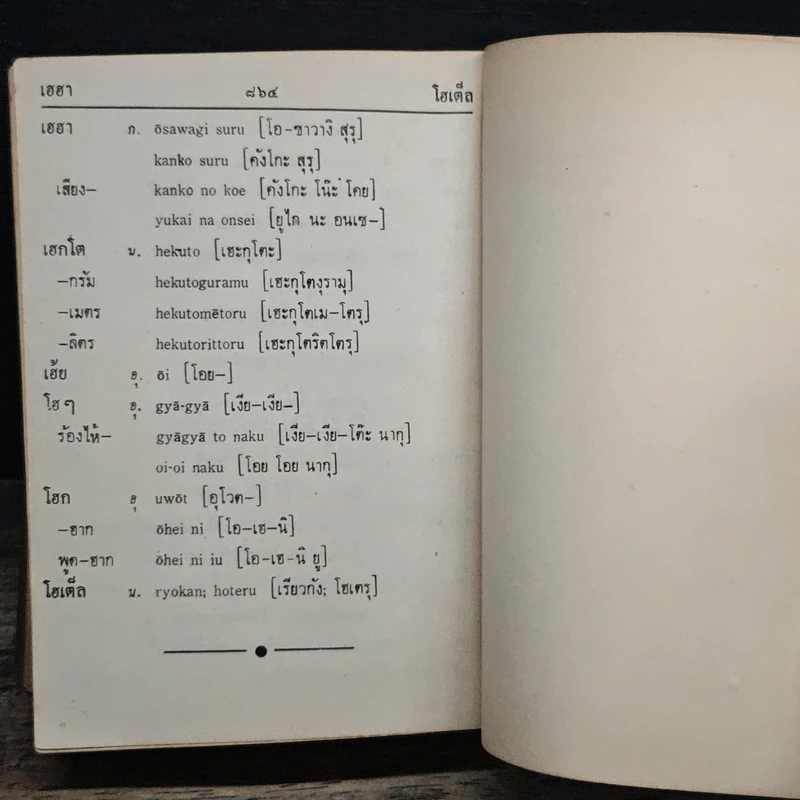 เฮฮา ๘๖๔ โฮเต็ล
เฮฮา ก. ōsawagi suru [โอ-ซาวางิ สุรุ]
kanko suru [คังโกะ สุรุ]
เสียง— kanko no koe [คังโกะ โน๊ะ โคย]
yukai na onsei [ยูไก นะ อนเซ-]
เฮกโต น. hekuto [เฮะกุโตะ]
—กรัม hekutoguramu [เฮะกุโตงุรามุ]
—เมตร hekutomētoru [เฮะกุโตเม—โตรุ]
—ลิตร hekutorittoru [เฮะกุโตริตโตรุ]
เฮ้ย อุ. ōi [โอย—]
โฮๆ อุ. gyā-gyā [เงีย—เงีย—]
ร้องไห้— gyāgyā to naku [เงีย—เงีย—โต๊ะ นากุ]
oi-oi naku [โอย โอย นากุ]
โฮก อุ uwōt [อุโวต—]
—ฮาก ōhei ni [โอ—เฮ—นิ]
พูด—ฮาก ōhei ni iu [โอ—เฮ—นิ ยู]
โฮเต็ล น. ryokan; hoteru [เรียวกัง; โฮเตรุ]